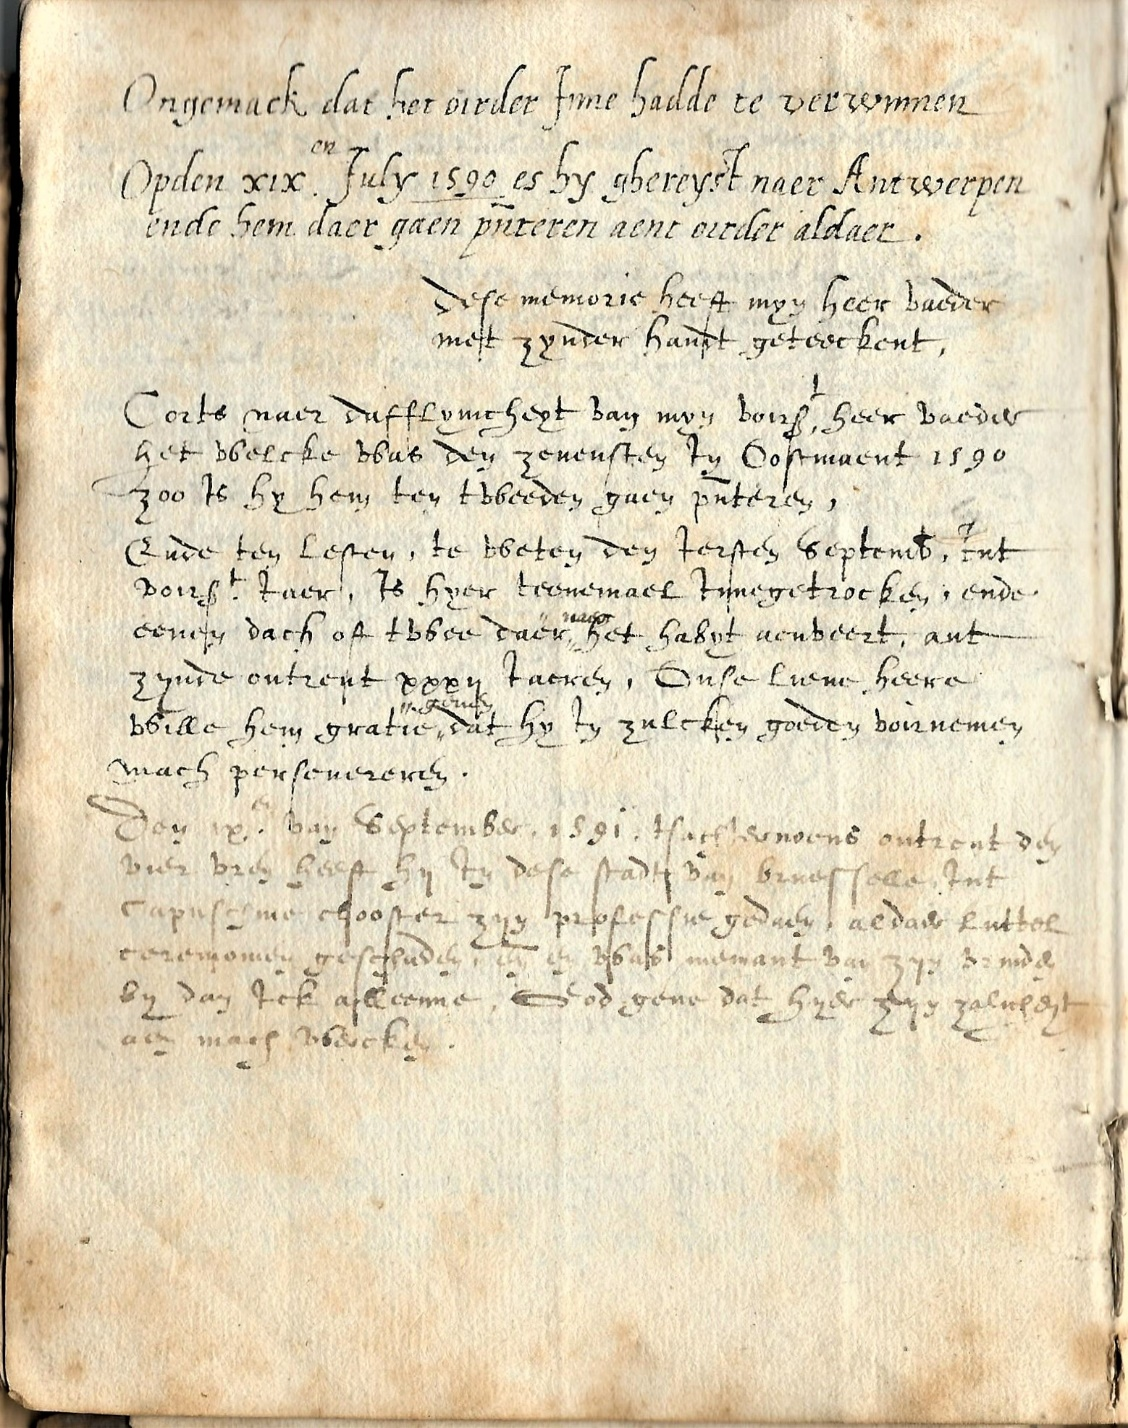 Ongemack dat het oirder Inne hadde te verwinnen
Opden xix.en July 1590 es hy ghereyst naer Antwerpen
ende hem daer gaen pn̄teren aent oirder aldaer.
Dese memorie heeft myn heer vaeder
met zynder handt geteeckent,
Corts naer dafflyvicheyt van myn voirs.t heer vaeder
het welcke was den zevensten In Oostmaent 1590
zoo Is hy hem ten tweeden gaen pn̄teren,
Ende ten lesten, te weten den Iersten Septemb. Int
voirs.t Iaer, Is hyer teenemael Innegetrocken, ende
eenen dach oft twee daer naer het habyt aenveert, out
zynde ontrent xxxij Iaeren, Onse lieve heere
wille hem gratie geven dat hy In zulcken goeden voirnemen
mach persevereren.
Den ix.en van September. 1591. tsachternoens ontrent den
vier vren heeft hij In dese stadt van bruesselle, Int
Capuschine clooster zyn professie gedaen, aldaer luttel
ceremonien geschieden, en̄ en was niemant van zyn vrinde
by dan Ick alleenne, God geve dat hyer zyn zalicheyt
aen mach wercken.